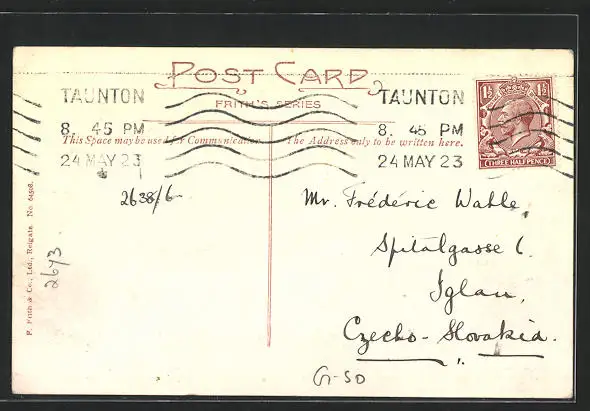 POST CARD
FRITH'S SERIES
TAUNTON
8. 45 PM
24 MAY 23
TAUNTON
8. 45 PM
24 MAY 23
1½ 1½
THREE HALF PENCE
This Space may be used for Communication.
The Address only to be written here.
2638/6
Mr. Frédéric Wahle,
Spitalgasse 6.
Iglau,
Czecho-Slovakia.
G-50
2673
F. Frith & Co., Ltd., Reigate. No. 64508.